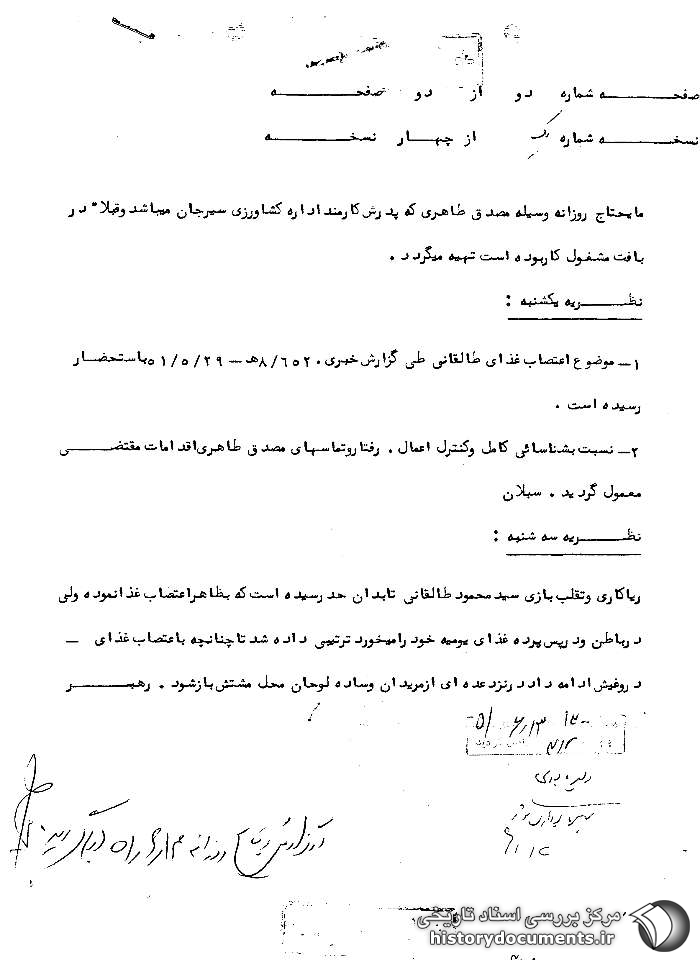 صفحـــه شماره دو از دو صفحـــه
نسخـــه شماره یک از چهـار نسخـــه
مایحتاج روزانه وسیله مصدق طاهری که پدرش کارمند اداره کشاورزی سیرجان میباشد وقبلا" در
بافت مشغول کاربوده است تهیه میگردد .
نظـــریه یکشنبه :
۱ــ موضوع اعتصاب غذای طالقانی طی گزارش خبری ۸/۶۵۲۰هـ ــ ۵۱/۵/۲۹ باستحضار
رسیده است .
۲ــ نسبت بشناسائی کامل وکنترل اعمال . رفتاروتماسهای مصدق طاهری اقدامات مقتضـــی
معمول گردید . سبلان
نظـــریه سه شنبه :
ریاکاری وتقلب بازی سیدمحمود طالقانی تابدان حد رسیده است که بظاهراعتصاب غذانموده ولی
درباطن ودرپس پرده غذای یومیه خود رامیخورد ترتیبی داده شد تاچنانچه باعتصاب غذای ــ
دروغیش ادامه داد درنزدعده ای ازمریدان وساده لوحان محل مشتش بازشود . رهبـــر
مرکز بررسی اسناد تاریخی
historydocuments.ir